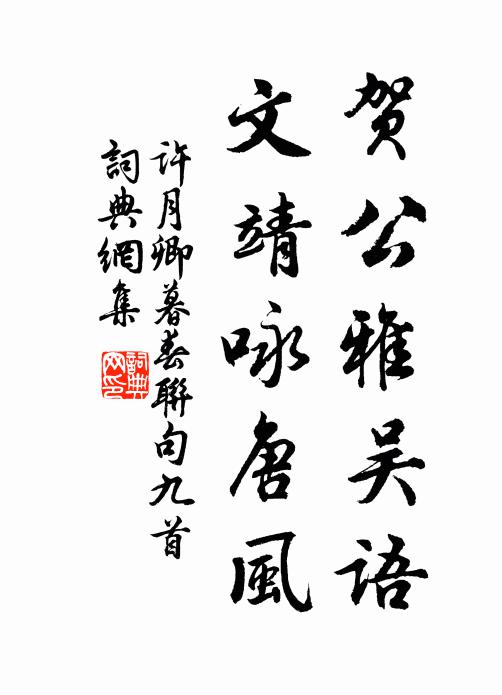 贺公雅吴语
文靖咏唐風
許月卿暮春聯句九首
詞典網集
詞典网印